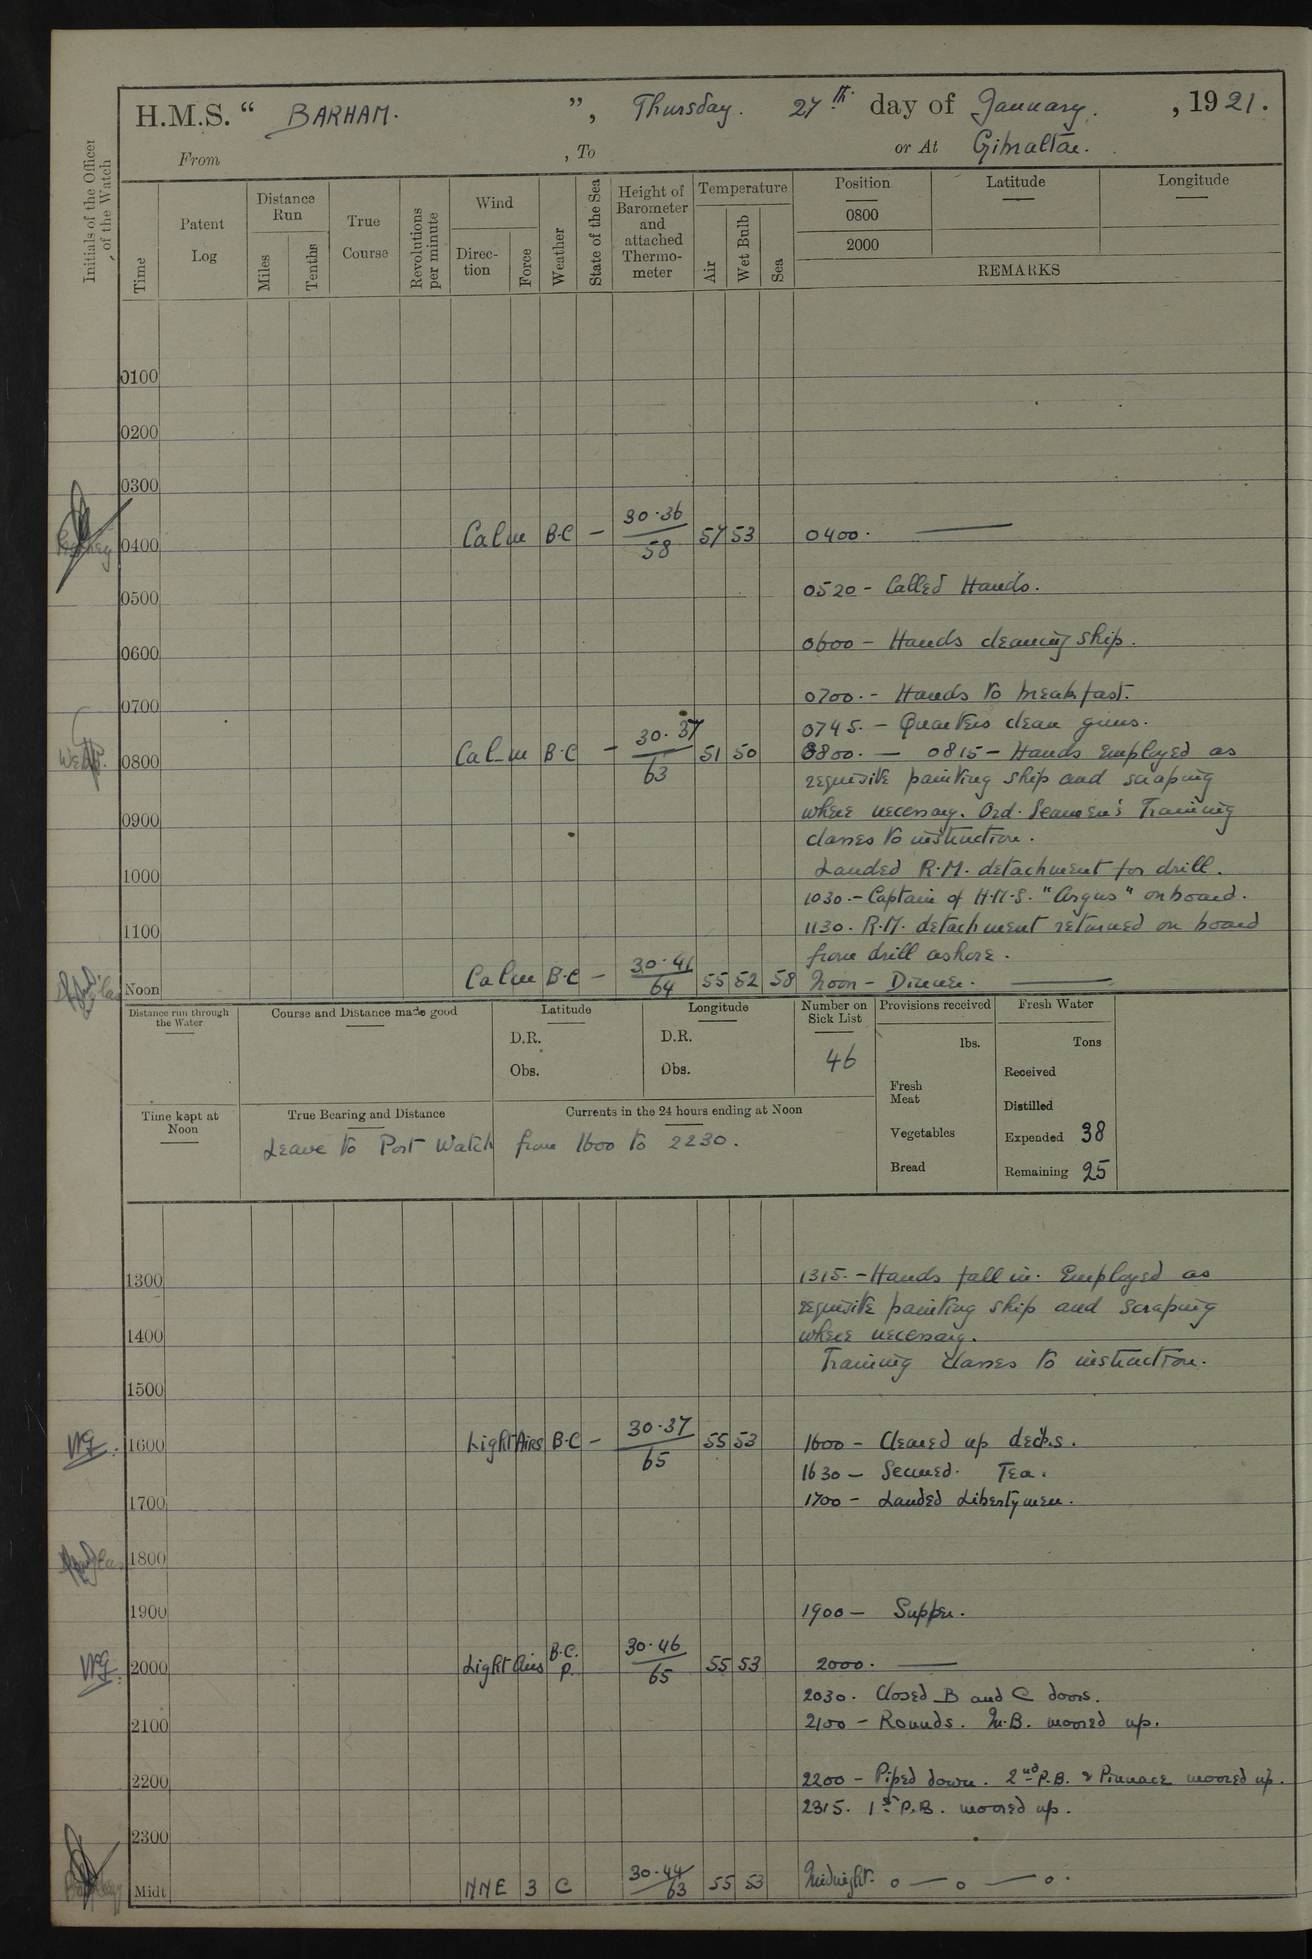 H.M.S. “ BARHAM. ”, Thursday. 27th day of January, 1921.
From , To or At Gibraltar.
Initials of the Officer of the Watch
Time
Patent Log
Distance Run
Miles
Tenths
True Course
Revolutions per minute
Wind
Direc-tion
Force
Weather
State of the Sea
Height of Barometer and attached Thermo-meter
Temperature
Air
Wet Bulb
Sea
Position Latitude Longitude
0800
2000
REMARKS
0100
0200
0300
0400 Calm B.C — 30.36 / 58 57 53 0400. ———
0520 - Called Hands.
0500
0600 - Hands cleaning ship.
0600
0700. - Hands to breakfast.
0700
0745. - Quarters clean guns.
0800 Calm B.C — 30.37 / 63 51 50 0800. — 0815 - Hands Employed as
requisite painting ship and scraping
where necessary. Ord. Seamen's Training
0900
classes to instruction.
Landed R.M. detachment for drill.
1000
1030. - Captain of H.M.S. "Argus" on board.
1130. R.M. detachment returned on board
1100
from drill ashore.
Noon Calm B.C — 30.41 / 64 55 52 58 Noon - Dinner. ———
Distance run through the Water
Course and Distance made good
Latitude
D.R.
Obs.
Longitude
D.R.
Obs.
Number on Sick List
46
Provisions received
lbs.
Fresh Meat
Vegetables
Bread
Fresh Water
Tons
Received
Distilled
Expended 38
Remaining 25
Time kept at Noon
True Bearing and Distance
Currents in the 24 hours ending at Noon
Leave to Port Watch from 1600 to 2230.
1300 1315. - Hands fall in. Employed as
requisite painting ship and scraping
1400 where necessary.
Training classes to instruction.
1500
1600 Light Airs B.C — 30.37 / 65 55 53 1600 - Cleared up decks.
1630 - Secured. Tea.
1700 1700 - Landed Libertymen.
1800
1900 1900 - Supper.
2000 Light Airs B.C. P. 30.46 / 65 55 53 2000. ———
2030. Closed B and C doors.
2100 2100 - Rounds. M.B. moored up.
2200 2200 - Piped down. 2nd P.B. & Pinnace moored up.
2315. 1st P.B. moored up.
2300
Midt NNE 3 C 30.44 / 63 55 53 Midnight. o — o — o.